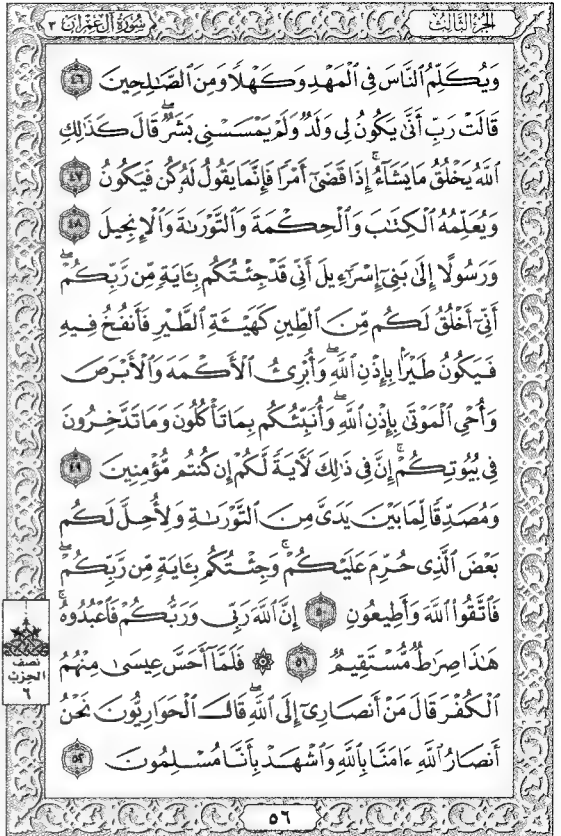 سُورَةُ آلِ عِمْرَانَ ٣
الجُزْءُ الثَّالِثُ
وَيُكَلِّمُ ٱلنَّاسَ فِي ٱلْمَهْدِ وَكَهْلًا وَمِنَ ٱلصَّٰلِحِينَ ٤٦
قَالَتْ رَبِّ أَنَّىٰ يَكُونُ لِي وَلَدٌ وَلَمْ يَمْسَسْنِي بَشَرٌۖ قَالَ كَذَٰلِكِ
ٱللَّهُ يَخْلُقُ مَا يَشَآءُۚ إِذَا قَضَىٰٓ أَمْرًا فَإِنَّمَا يَقُولُ لَهُۥ كُن فَيَكُونُ ٤٧
وَيُعَلِّمُهُ ٱلْكِتَٰبَ وَٱلْحِكْمَةَ وَٱلتَّوْرَىٰةَ وَٱلْإِنجِيلَ ٤٨
وَرَسُولًا إِلَىٰ بَنِيٓ إِسْرَٰٓءِيلَ أَنِّي قَدْ جِئْتُكُم بِـَٔايَةٍ مِّن رَّبِّكُمْۖ
أَنِّيٓ أَخْلُقُ لَكُم مِّنَ ٱلطِّينِ كَهَيْـَٔةِ ٱلطَّيْرِ فَأَنفُخُ فِيهِ
فَيَكُونُ طَيْرًۢا بِإِذْنِ ٱللَّهِۖ وَأُبْرِئُ ٱلْأَكْمَهَ وَٱلْأَبْرَصَ
وَأُحْيِ ٱلْمَوْتَىٰ بِإِذْنِ ٱللَّهِۖ وَأُنَبِّئُكُم بِمَا تَأْكُلُونَ وَمَا تَدَّخِرُونَ
فِي بُيُوتِكُمْۚ إِنَّ فِي ذَٰلِكَ لَـَٔايَةً لَّكُمْ إِن كُنتُم مُّؤْمِنِينَ ٤٩
وَمُصَدِّقًا لِّمَا بَيْنَ يَدَيَّ مِنَ ٱلتَّوْرَىٰةِ وَلِأُحِلَّ لَكُم
بَعْضَ ٱلَّذِي حُرِّمَ عَلَيْكُمْۚ وَجِئْتُكُم بِـَٔايَةٍ مِّن رَّبِّكُمْۖ
فَٱتَّقُوا۟ ٱللَّهَ وَأَطِيعُونِ ٥٠ إِنَّ ٱللَّهَ رَبِّي وَرَبُّكُمْ فَٱعْبُدُوهُۚ
هَٰذَا صِرَٰطٌ مُّسْتَقِيمٌ ٥١ ۞ فَلَمَّآ أَحَسَّ عِيسَىٰ مِنْهُمُ
ٱلْكُفْرَ قَالَ مَنْ أَنصَارِيٓ إِلَى ٱللَّهِۖ قَالَ ٱلْحَوَارِيُّونَ نَحْنُ
أَنصَارُ ٱللَّهِ ءَامَنَّا بِٱللَّهِ وَٱشْهَدْ بِأَنَّا مُسْلِمُونَ ٥٢
نصف
الحزب
٦
٥٦